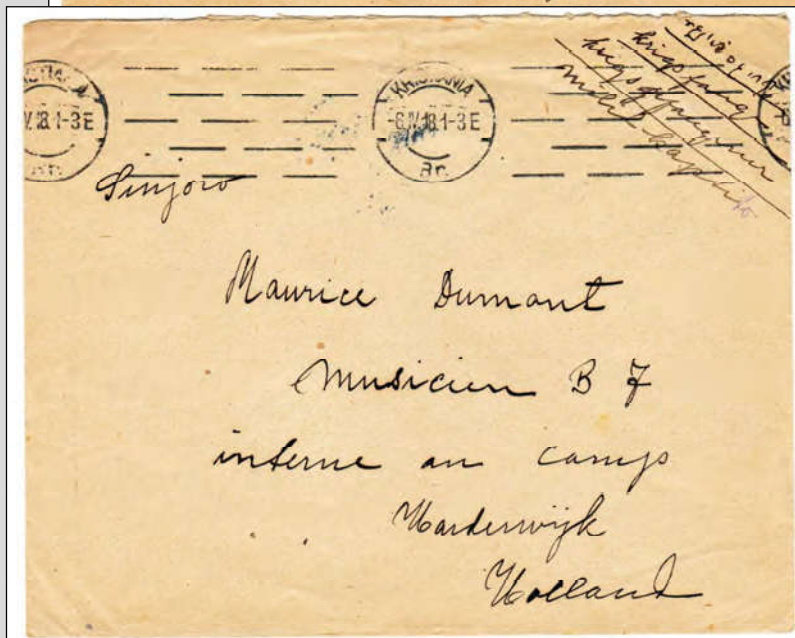 KRISTIANIA
-6.IV.18.1-3E
Br.
V.18.1-3E
krigsfang
milit kaptito
Sinjoro
Maurice Dumont
musicien B 7
interne au camps
Harderwijk
Holland